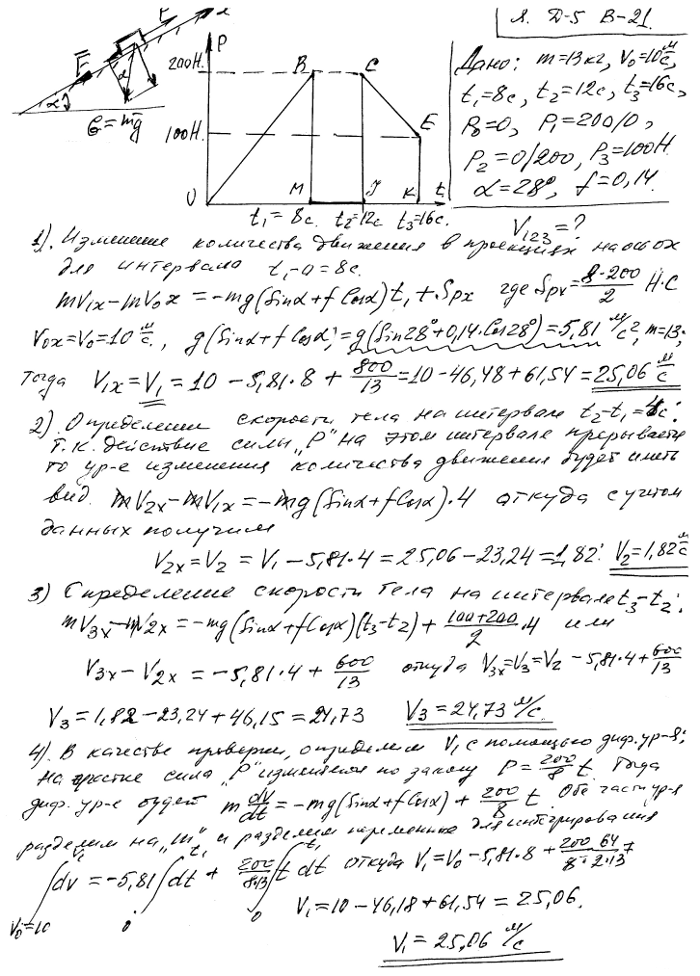 Я. Д-5 В-21.
P
x
200Н. В С
100Н. E
G = mg
α
F
О М K t
t₁ = 8с. t₂=12с t₃=16с.
Дано: m=13кг, V₀=10 м/с,
t₁=8с, t₂=12с, t₃=16с,
P₀=0, P₁=200/0,
P₂=0/200, P₃=100Н.
α=28°, f=0,14.
V₁₂₃=?
1). Изменение количества движения в проекциях на ось ох
для интервала t₁-0=8с.
mV₁ₓ-mV₀ₓ=-mg(Sinα+fCosα)t₁+Spx где Spx= 8·200/2 Н·С
V₀ₓ=V₀=10 м/с., g(Sinα+fCosα)=g(Sin28°+0,14·Cos28°)=5,81 м/с², m=13;
Тогда V₁ₓ=V₁=10-5,81·8+800/13=10-46,48+61,54=25,06 м/с
2). Определение скорости тела на интервале t₂-t₁=4с:
Т.к. действие силы "P" на этом интервале прерывается
то ур-е изменения количества движения будет иметь
вид. mV₂ₓ-mV₁ₓ=-mg(Sinα+fCosα)·4 откуда с учетом
данных получим
V₂ₓ=V₂=V₁-5,81·4=25,06-23,24=1,82: V₂=1,82 м/с
3) Определение скорости тела на интервале t₃-t₂:
mV₃ₓ-mV₂ₓ=-mg(Sinα+fCosα)(t₃-t₂)+ 100+200/2 ·4 или
V₃ₓ-V₂ₓ=-5,81·4+600/13 откуда V₃ₓ=V₃=V₂-5,81·4+600/13
V₃=1,82-23,24+46,15=24,73 V₃=24,73 м/с.
4). В качестве проверки, определим V₁ с помощью диф. ур-я;
На участке сила "P" изменяется по закону P=200/8 t. Тогда
диф. ур-е будет m dv/dt=-mg(Sinα+fCosα)+200/8 t Обе части ур-я
разделим на "m" и разделим переменные для интегрирования
∫dv=-5,81∫dt+200/8·13 ∫t dt откуда V₁=V₀-5,81·8+200·64/8·2·13
V₀=10 0 0 V₁=10-46,18+61,54=25,06.
V₁=25,06 м/с